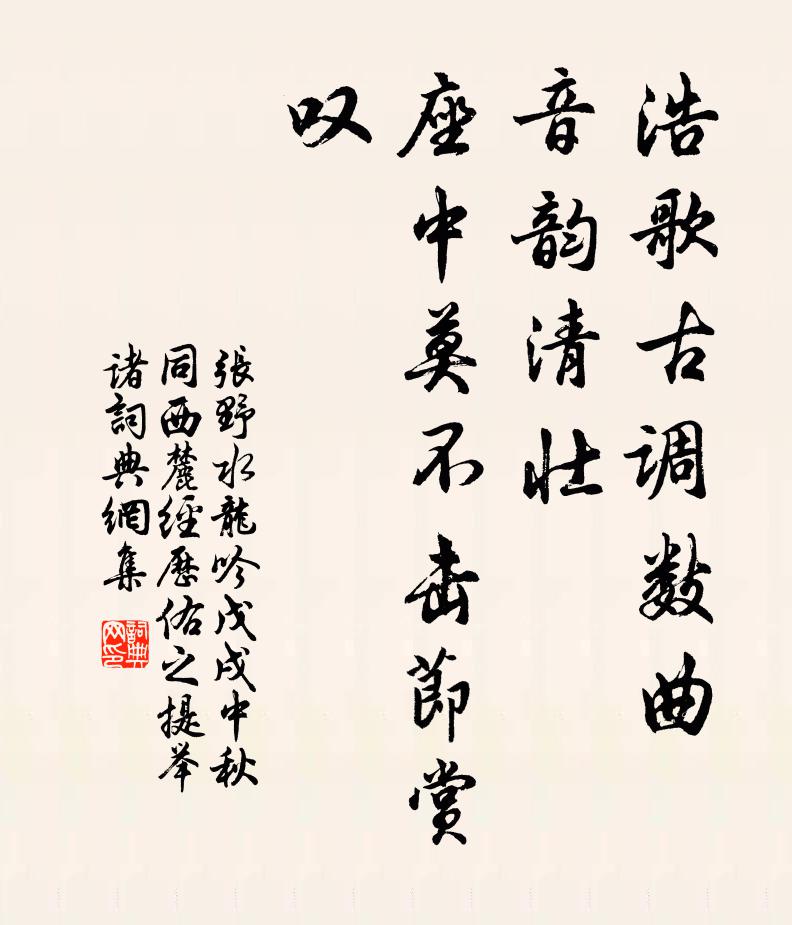 浩歌古调数曲
音韵清壮
座中莫不击節赏
叹
張野水龍吟戊戌中秋
同西麓經歷佑之提举
诸詞典網集
詞典网印